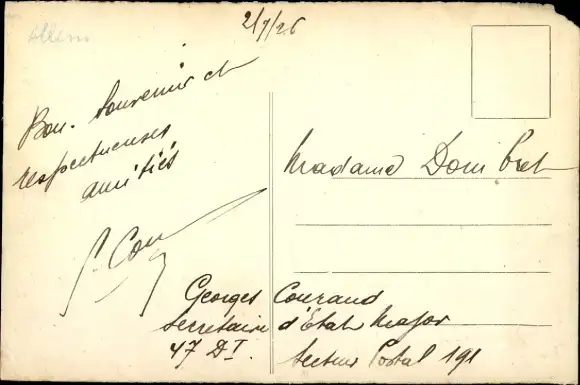 2/7/26
Bon. Souvenir et
respectueuses
amitiés
Madame
Georges Couraud
secretaire d'Etat Major
47 DI. Secteur Postal 191